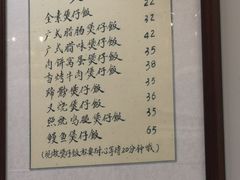 22
全素煲仔饭 32
广式腊肠煲仔饭 42
广式腊味煲仔饭 35
肉饼窝蛋煲仔饭 38
古烤牛肉煲仔饭 35
排骨煲仔饭 35
叉烧煲仔饭
照烧鸡腿煲仔饭
鳗鱼煲仔饭 65
(现做煲仔饭都要耐心等待20分钟哦)